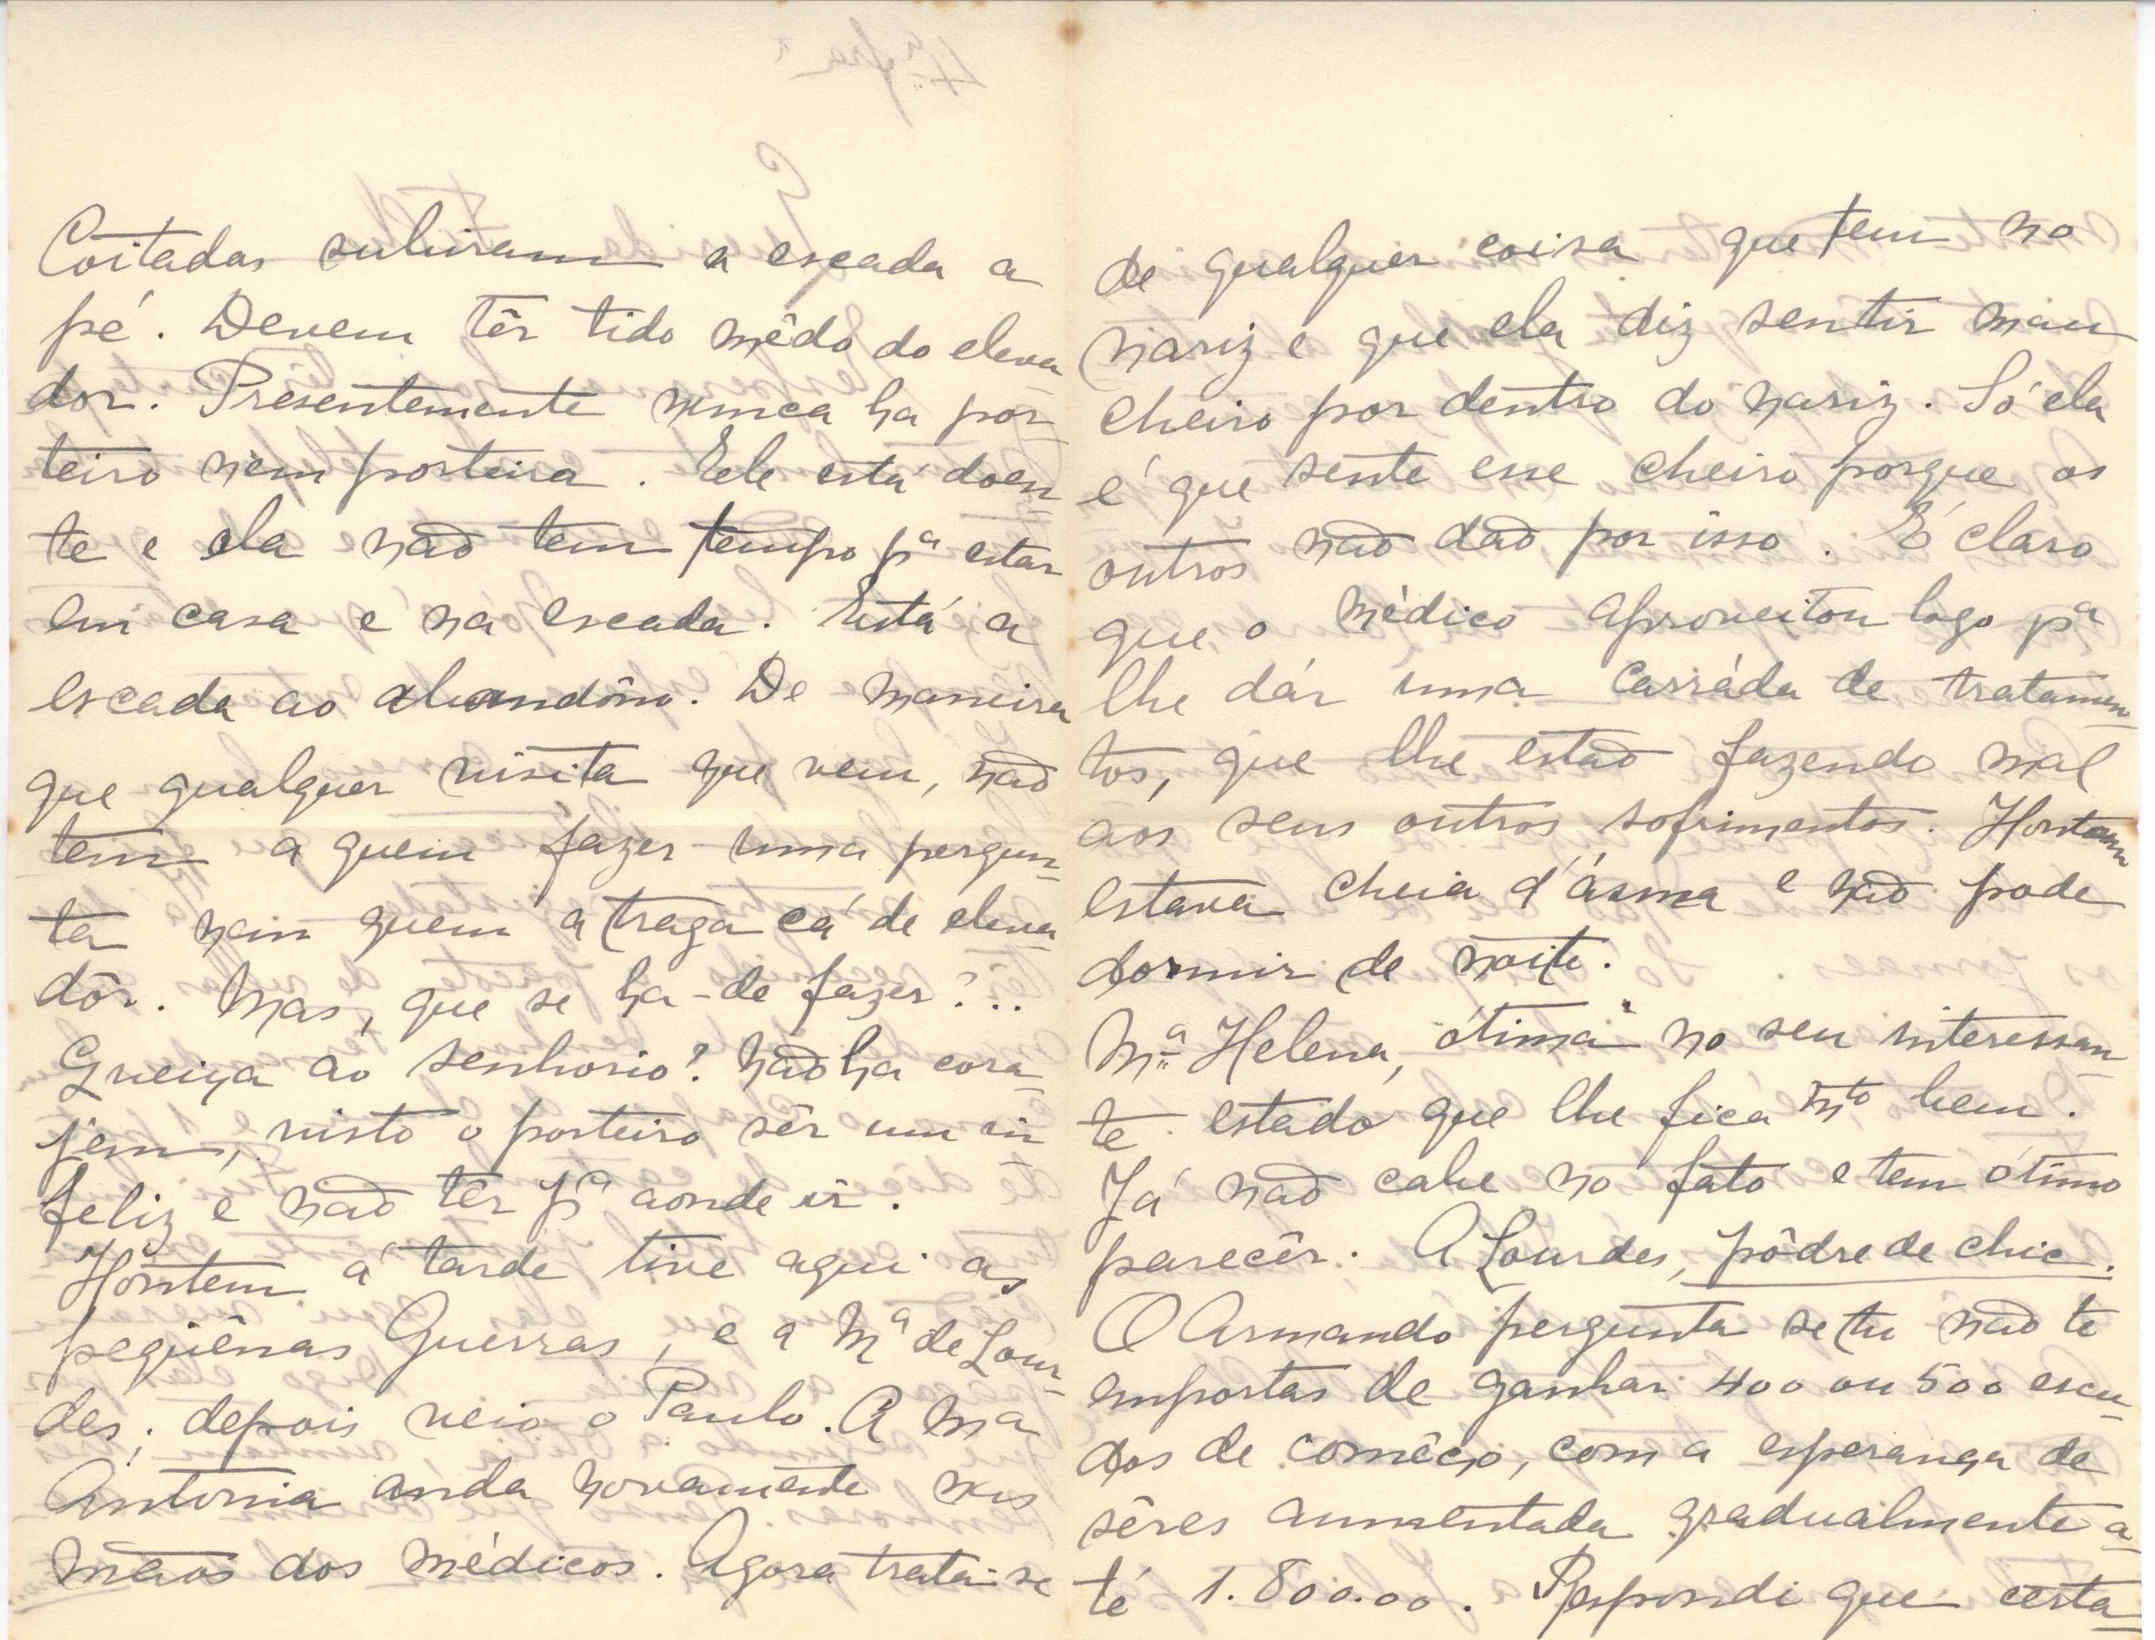 Coitadas subiram a escada a
pé. Devem têr tido mêdo do eleva
dor. Presentemente nunca ha por-
teiro nem porteira. Ele está doen=
te e ela não tem tempo pª estar
em casa e na escada. Está a
escada ao abandôno. De maneira
que qualquer visita que vem, não
tem a quem fazer uma pergun=
ta nem quem a traga cá de eleva=
dôr. Mas, que se ha-de fazer?...
Queixa ao senhorio? Não ha cora=
jem, visto o porteiro sêr um in
feliz e não têr pª aonde ir.
Hontem á tarde tive aqui as
peqüênas Guerras, e a Mª de Lour-
des; depois veio o Paulo. A Mª
Antonia anda novamente nas
mãos dos médicos. Agora trata-se
de qualquer coisa que tem no
nariz e que ela diz sentir mau
cheiro por dentro do nariz. Só ela
é que sente esse cheiro porque os
outros não dão por isso. É claro
que o médico aproveitou logo pª
lhe dár uma carráda de tratamen-
tos, que lhe estão fazendo mal
aos seus outros sofrimentos. Hontem
estava cheia d'ásma e não pode
dormir de noite.
Mª Helena, ótima no seu interessan=
te estado que lhe fica mto bem.
Já não cabe no fato e tem ótimo
parecêr. A Lourdes, pôdre de chic.
O Armando pergunta se tu não te
importas de ganhar 400 ou 500 escu=
dos de comêço, com a esperança de
sêres aumentada gradualmente a=
té 1.800.00. Respondi que certa=
4ª fra